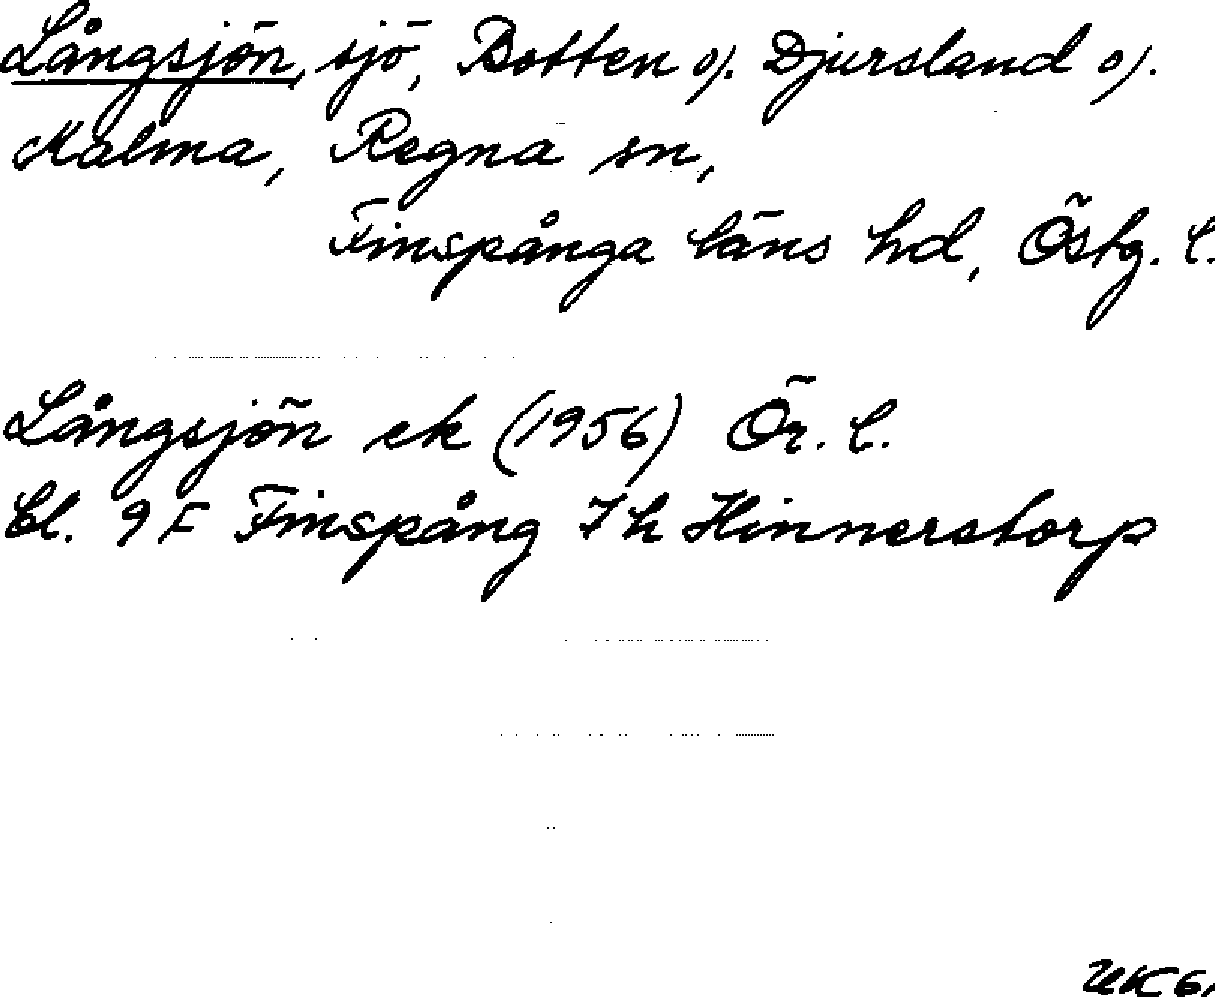 Långsjön, sjö, Botten o/. Djursland o/.
Malma, Regna sn,
Finspånga läns hd, Östg. l.
Långsjön ek (1956) Ör. l.
Bl. 9 F Finspång 7 h Hinnerstorp
UK 61